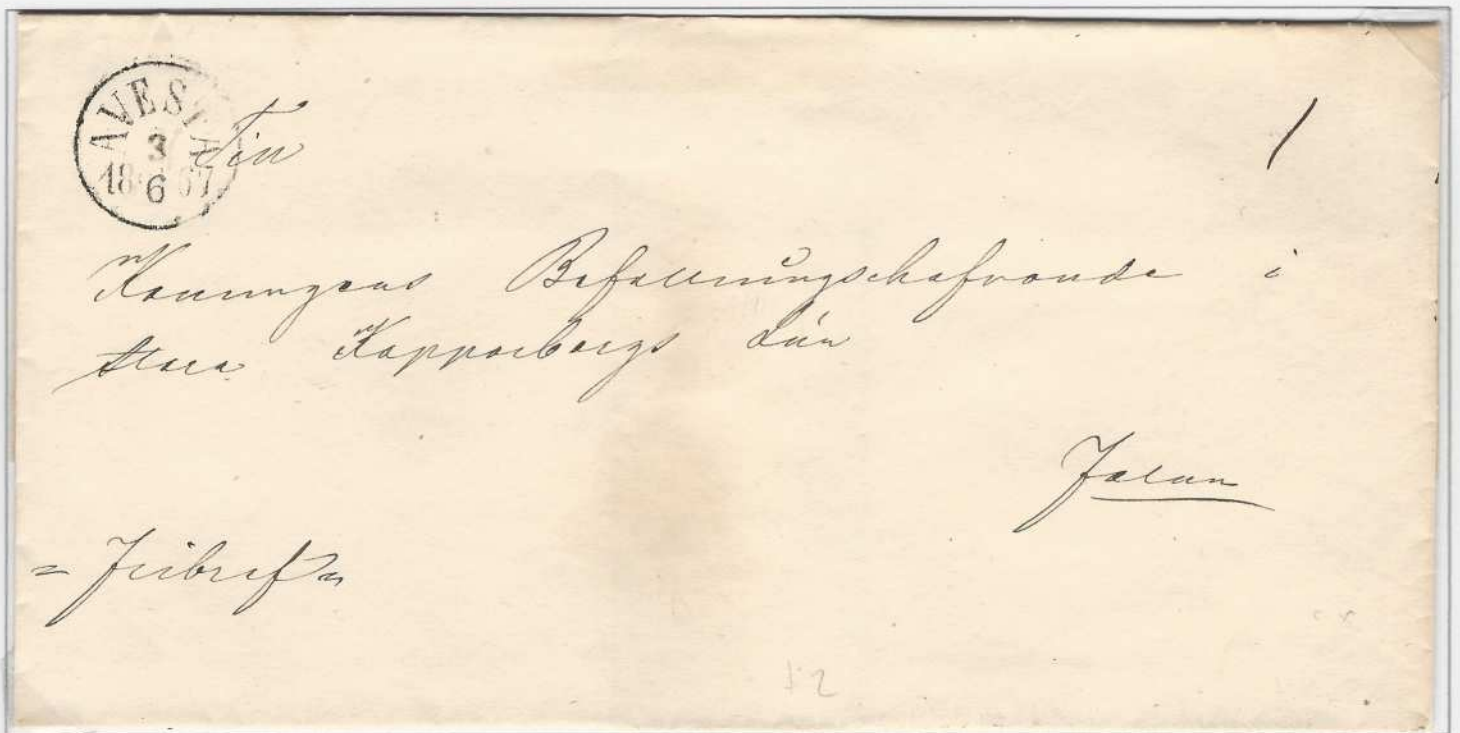 AVESTA
3
1867
6
Till
/
Konungens Befallningshafvande i
Stora Kopparbergs Län
Falun
= Fribref =
12